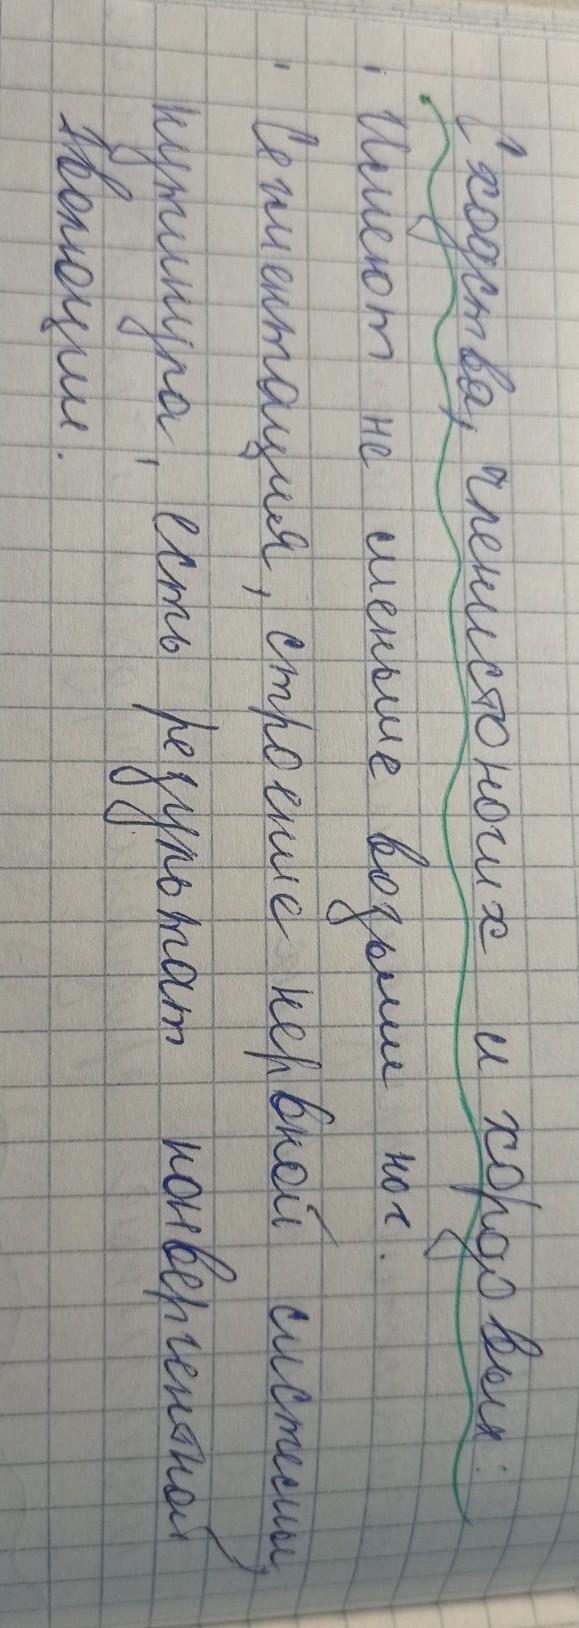 Сходства, членистоногих и хордовых:
' Имеют не меньше восьми ног.
' Сегментация, строение нервной системы,
кутикула, есть результат конвергентной
эволюции.